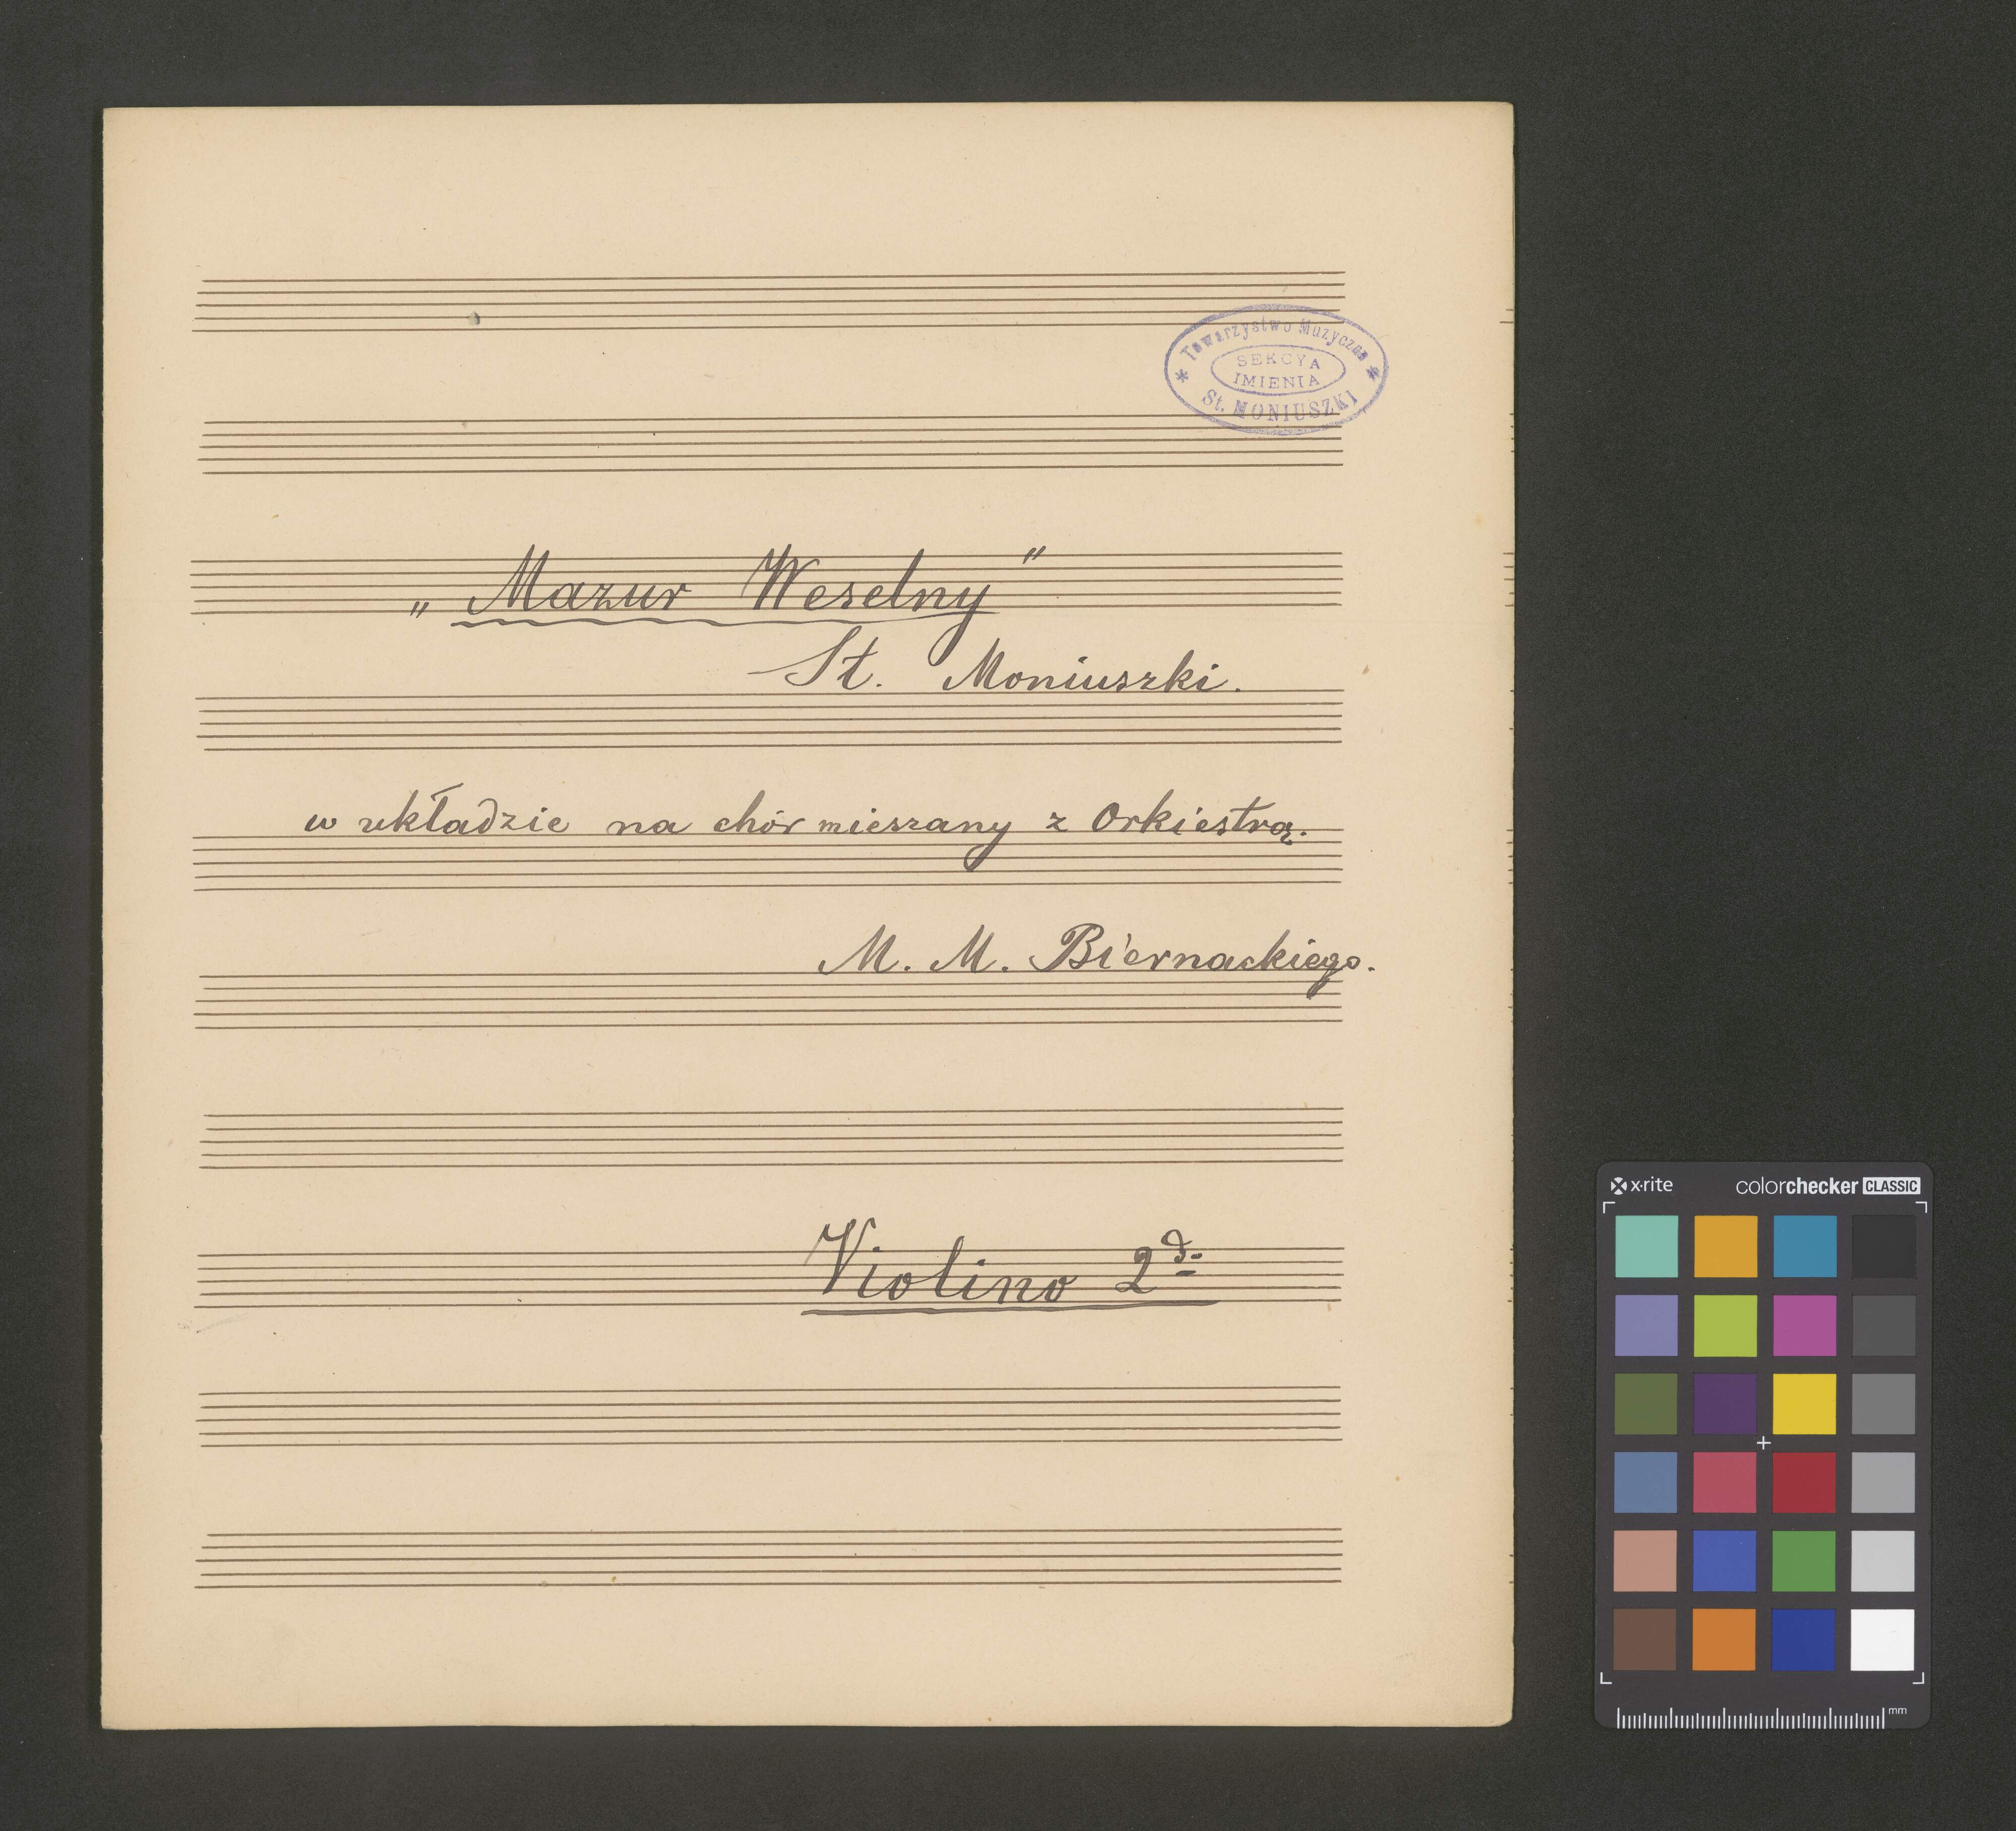 * Towarzystwo Muzyczne *
SEKCYA
IMIENIA
St. MONIUSZKI
„Mazur Weselny"
St. Moniuszki.
w układzie na chór mieszany z Orkiestrą.
M. M. Biernackiego.
Violino 2do
x·rite colorchecker CLASSIC
mm